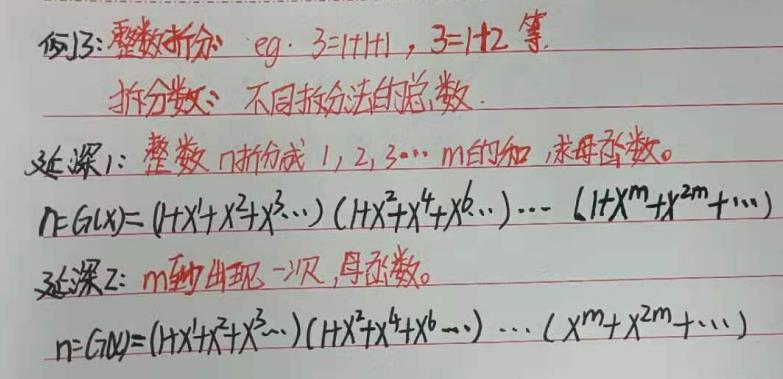 例3:整数拆分: eg. 3=1+1+1,3=1+2 等.
拆分数: 不同拆分法的总数.
延深1: 整数n拆分成 1,2,3… m的和,求母函数。
n=G(x)=(1+x¹+x²+x³…)(1+x²+x⁴+x⁶…)…(1+x^m+x^{2m}+…)
延深2: m至少出现一次,母函数。
n=G(x)=(1+x¹+x²+x³…)(1+x²+x⁴+x⁶…)…(x^m+x^{2m}+…)